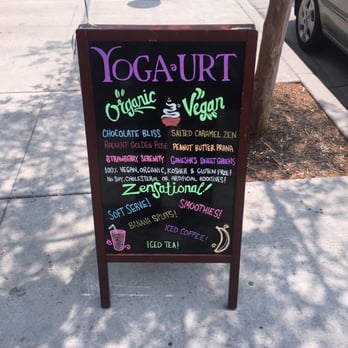 YOGA-URT
Organic Vegan
CHOCOLATE BLISS SALTED CARAMEL ZEN
RADIANT GOLDEN ROSE PEANUT BUTTER PRANA
STRAWBERRY SERENITY GANESHA'S SWEET GREENS
100% VEGAN, ORGANIC, KOSHER & GLUTEN FREE!
NO SOY, CHOLESTEROL OR ARTIFICIAL ADDITIVES!
Zensational!
SOFT SERVE! SMOOTHIES!
BANANA SPLITS! ICED COFFEE!
ICED TEA!